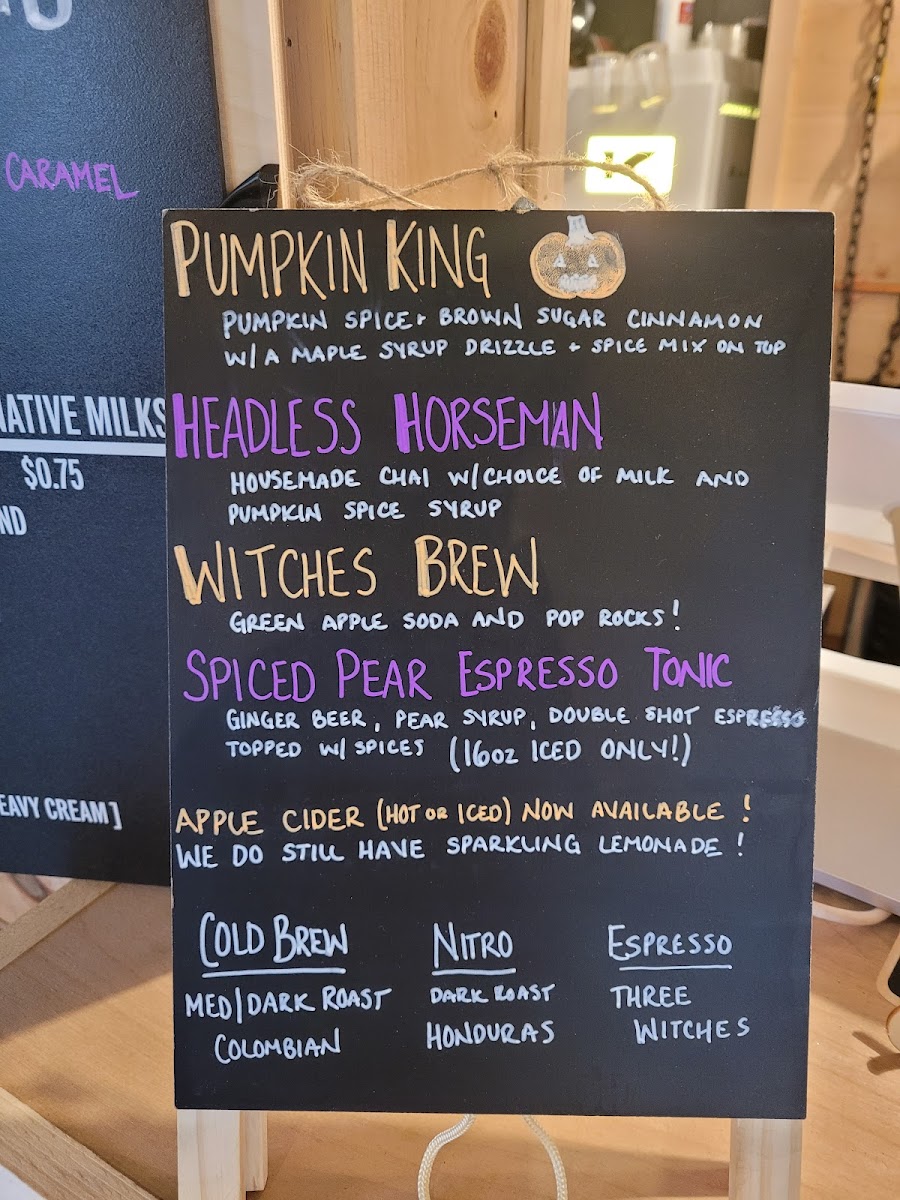 CARAMEL
NATIVE MILKS
$0.75
ND
EAVY CREAM]
K
PUMPKIN KING
PUMPKIN SPICE + BROWN SUGAR CINNAMON
W/A MAPLE SYRUP DRIZZLE + SPICE MIX ON TOP
HEADLESS HORSEMAN
HOUSEMADE CHAI W/CHOICE OF MILK AND
PUMPKIN SPICE SYRUP
WITCHES BREW
GREEN APPLE SODA AND POP ROCKS!
SPICED PEAR ESPRESSO TONIC
GINGER BEER, PEAR SYRUP, DOUBLE SHOT ESPRESSO
TOPPED W/ SPICES (16oz ICED ONLY!)
APPLE CIDER (HOT OR ICED) NOW AVAILABLE!
WE DO STILL HAVE SPARKLING LEMONADE!
COLD BREW
MED/DARK ROAST
COLOMBIAN
NITRO
DARK ROAST
HONDURAS
ESPRESSO
THREE
WITCHES